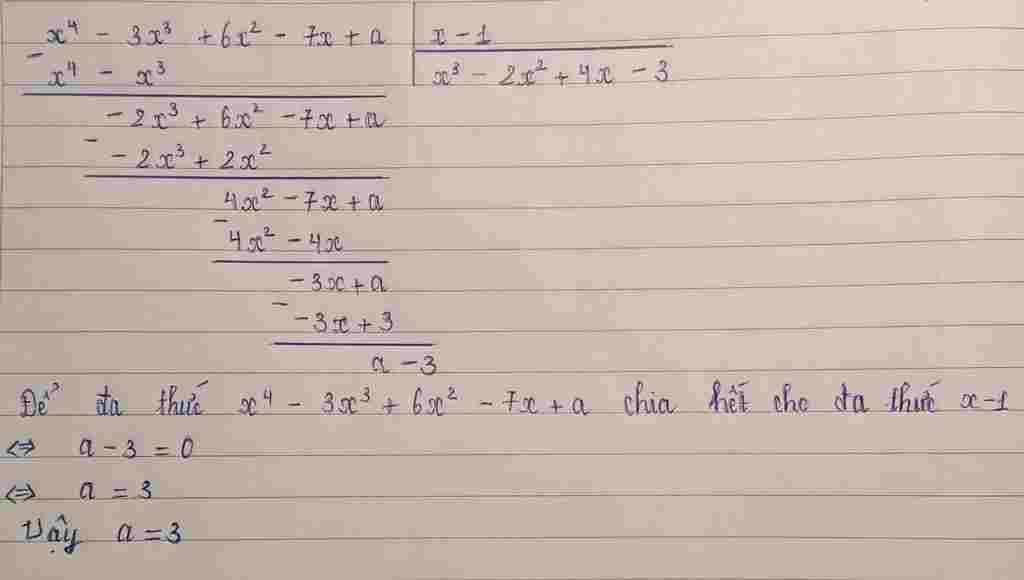 x⁴ - 3x³ + 6x² - 7x + a | x - 1
- x⁴ - x³ | x³ - 2x² + 4x - 3
-2x³ + 6x² - 7x + a
- -2x³ + 2x²
4x² - 7x + a
- 4x² - 4x
-3x + a
- -3x + 3
a - 3
Để đa thức x⁴ - 3x³ + 6x² - 7x + a chia hết cho đa thức x-1
⇔ a - 3 = 0
⇔ a = 3
Vậy a = 3